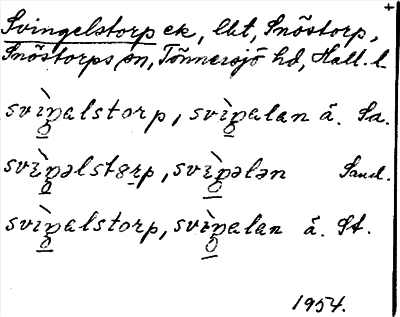 +
Svingelstorp ek, lbt, Snöstorp,
Snöstorps sn, Tönnersjö hd, Hall. l.
svìŋ̥alstorp, svìŋ̥alan ä. Sa.
svìŋ̥əlstɞrp, svìŋ̥ələn Sand.
svìŋ̥alstorp, svìŋ̥alan ä. St.
1954.